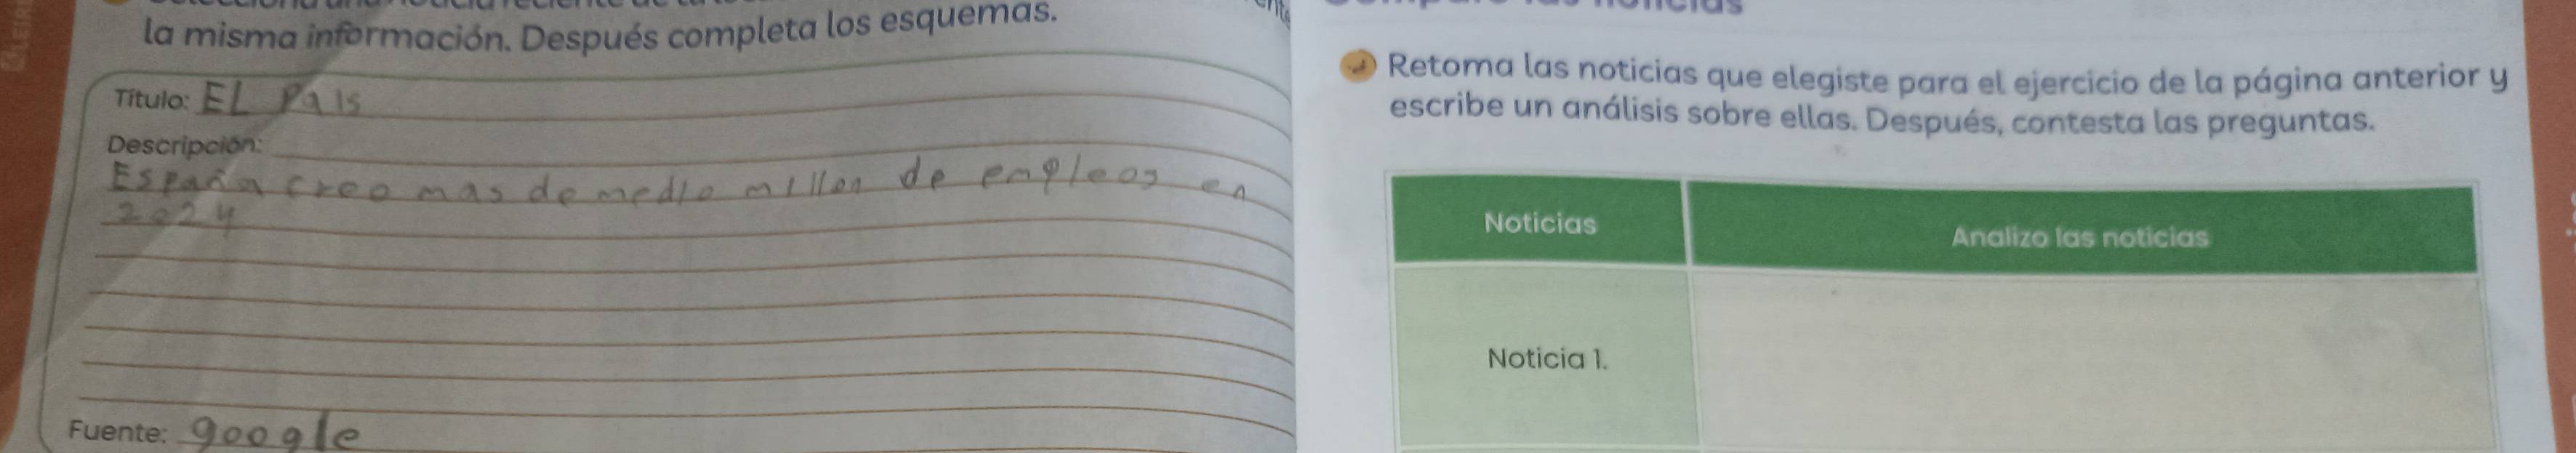 la misma información. Después completa los esquemas.
Título: EL PaIs
Descripción:
España creo mas de medio millon de empleos en
2024
Fuente: google
Retoma las noticias que elegiste para el ejercicio de la página anterior y
escribe un análisis sobre ellas. Después, contesta las preguntas.
Noticias
Analizo las noticias
Noticia 1.